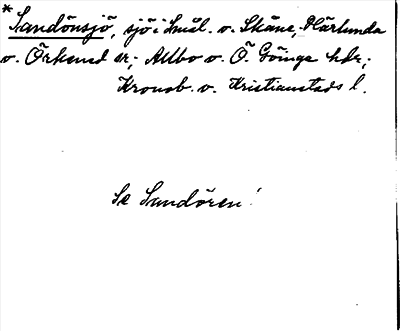 * Sandönsjö, sjö i Smål. o. Skåne, Härlunda
o. Örkened sr; Allbo o. Ö. Göinge hdr;
Kronob. o. Kristianstads l.
Se Sandören!